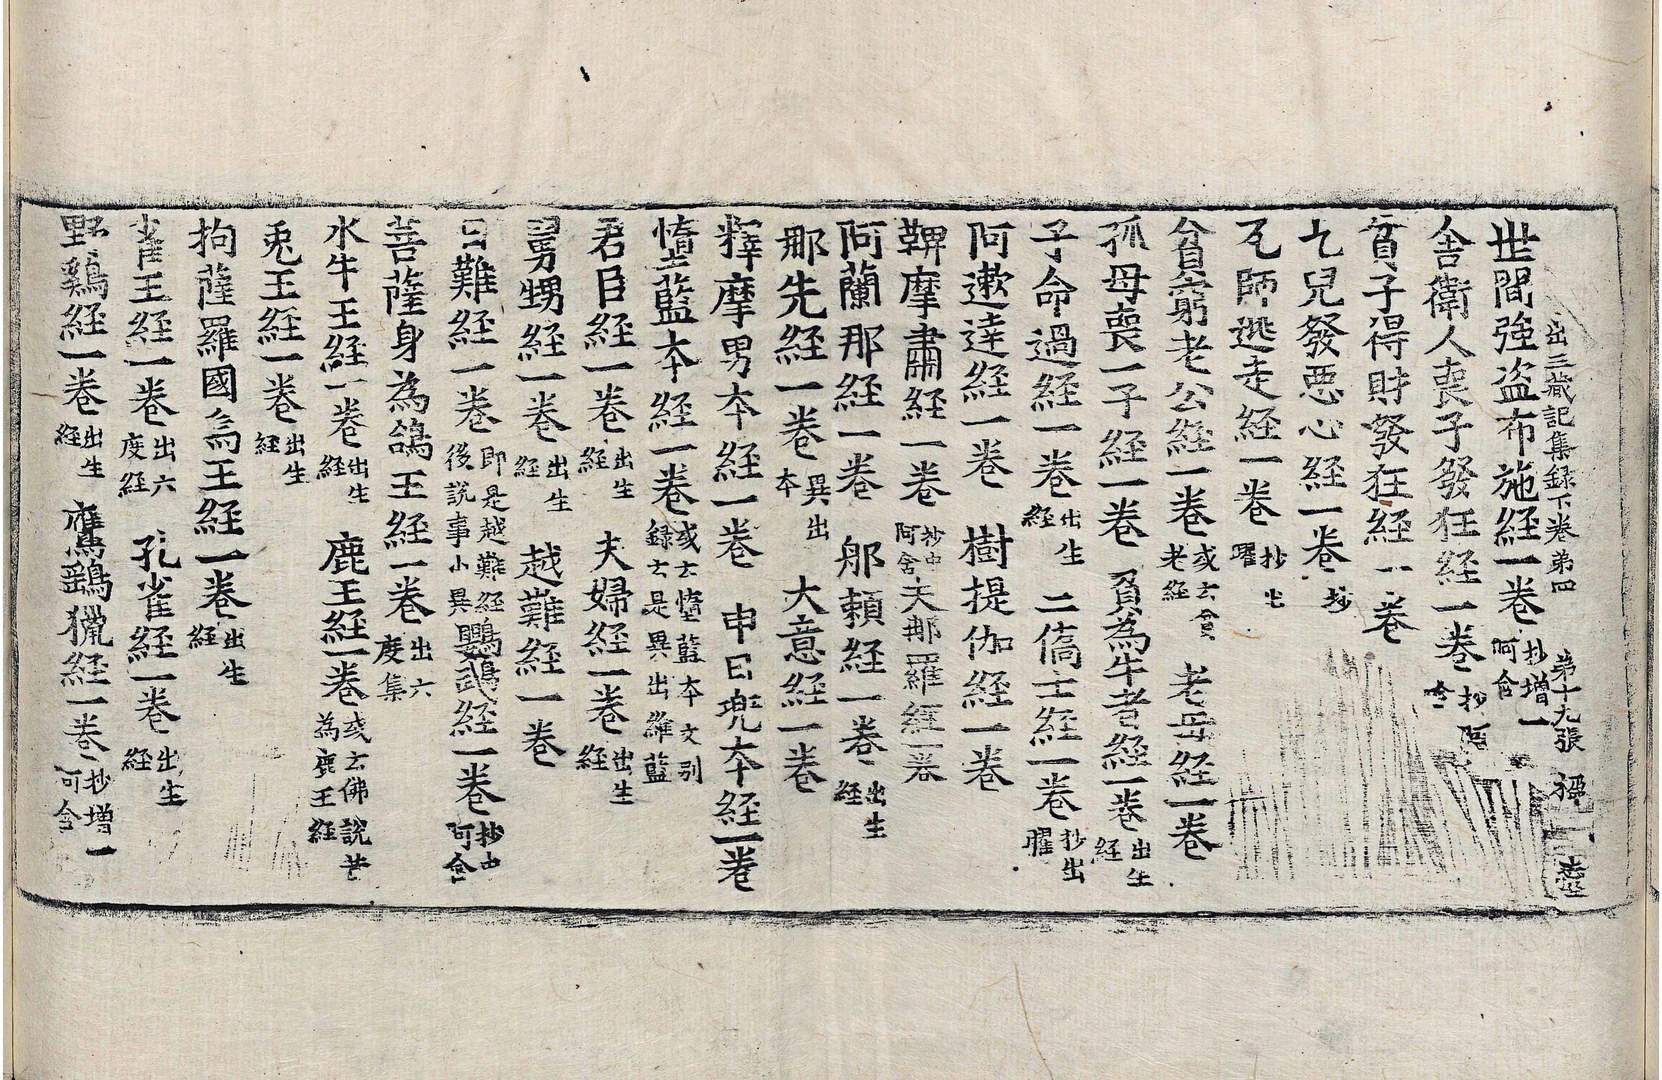 出三藏記集録下卷第四 第十九張
世間強盗布施経一卷 抄増一阿含
舎衛人喪子發狂経一卷 抄阿含
貧子得財發狂経一卷
乞兒發惡心経一卷 抄
瓦師逃走経一卷 抄出曜
貧窮老公経一卷 或云貧老経 老母経一卷
孤母喪一子経一卷 貧為牛者経一卷 出生経
子命過経一卷 出生経 二僑士経一卷 抄出曜
阿遬達経一卷 樹提伽経一卷
鞞摩肅経一卷 抄中阿含 夫那羅経一卷
阿蘭那経一卷 郍頼経一卷 出生経
那先経一卷 異出本 大意経一卷
釋摩男本経一卷 申日兜本経一卷
惰藍本経一卷 或云惰藍本文别録云是異出維藍
君臣経一卷 出生経 夫婦経一卷 出生経
舅甥経一卷 出生経 越難経一卷
日難経一卷 即是越難経後説事小異 鸚鵡経一卷 抄中阿含
菩薩身為鴿王経一卷 出六度集
水牛王経一卷 出生経 鹿王経一卷 或云佛説為鹿王経
兎王経一卷 出生経
拘薩羅國烏王経一卷 出生経
雀王経一卷 出六度経 孔雀経一卷 出生経
野鷄経一卷 出生経 鷹鷂獵経一卷 抄増一阿含